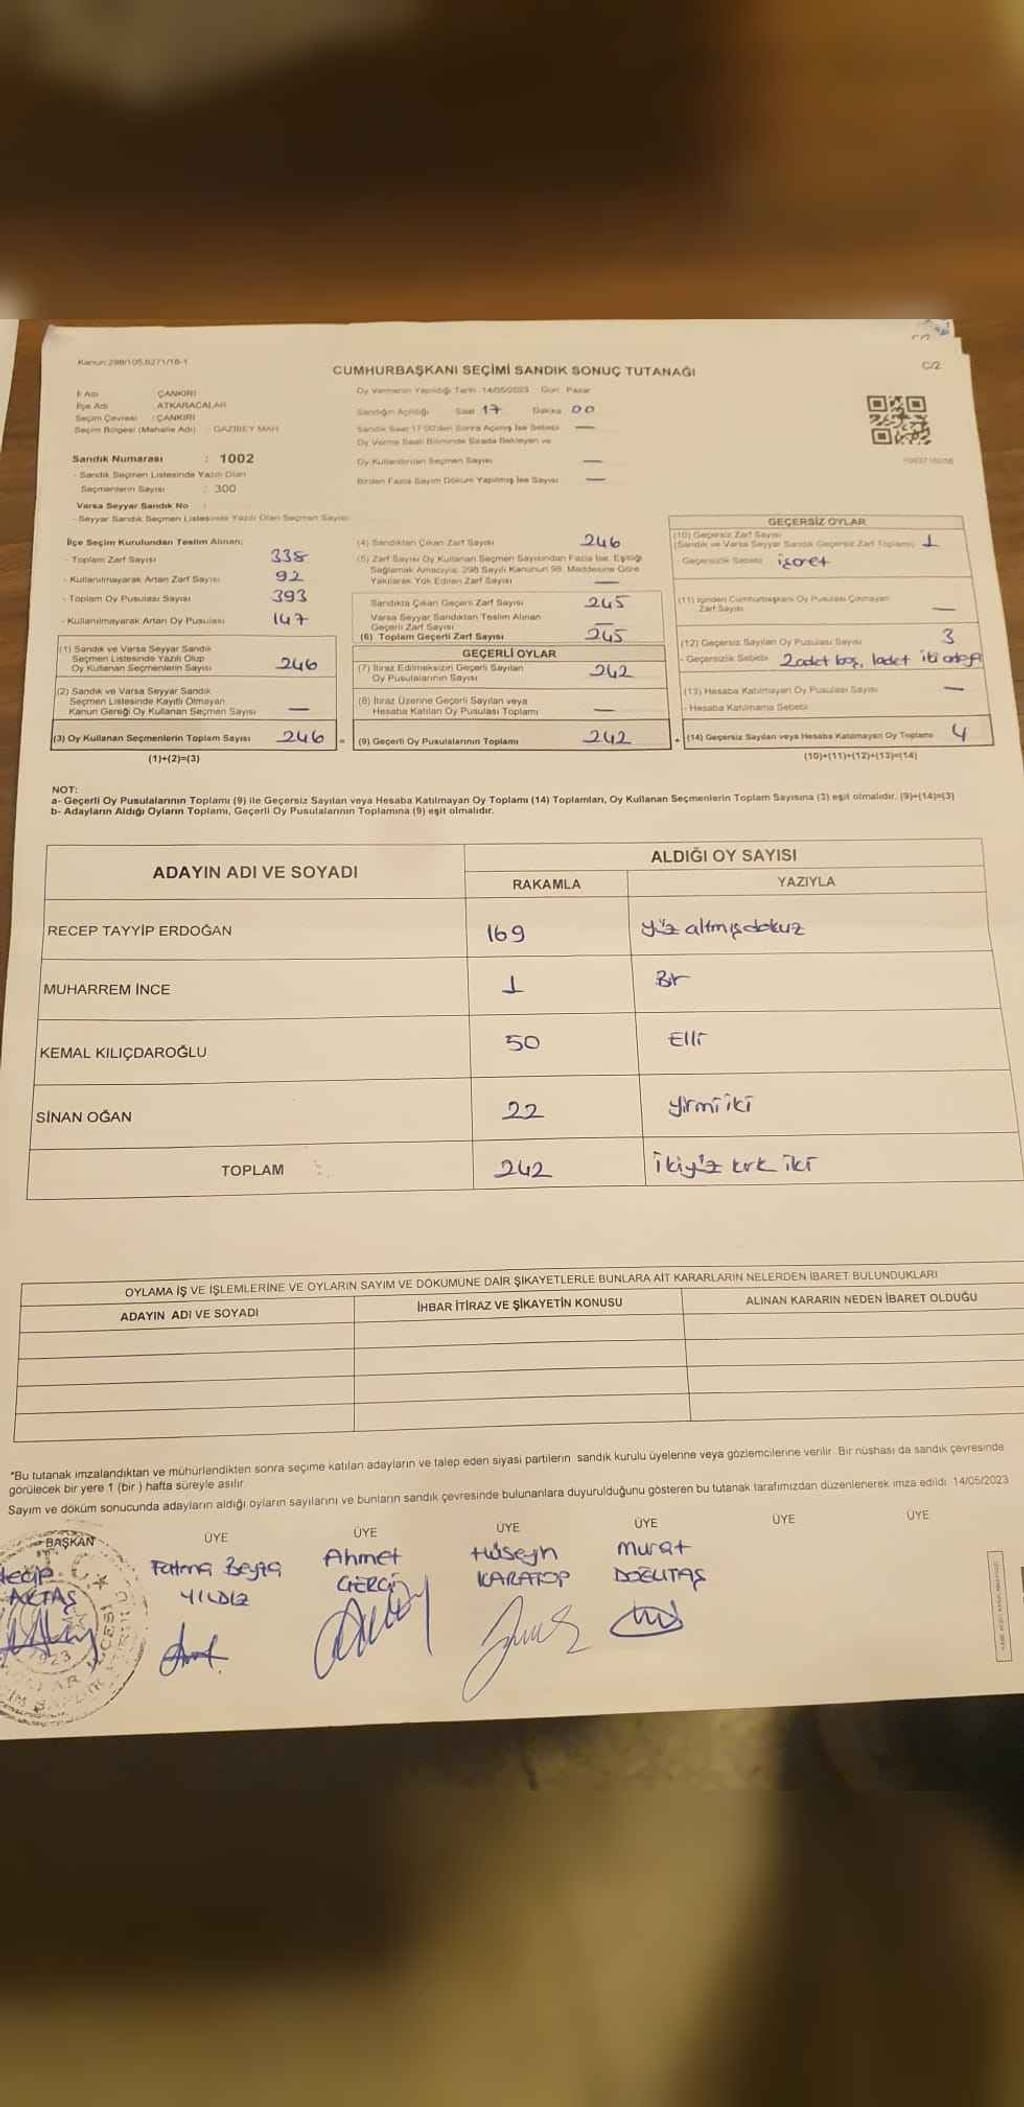 Kanun:298/105,6271/16-1
CUMHURBAŞKANI SEÇİMİ SANDIK SONUÇ TUTANAĞI
C/2
İl Adı : ÇANKIRI
İlçe Adı : ATKARACALAR
Seçim Çevresi : ÇANKIRI
Seçim Bölgesi (Mahalle Adı) : GAZİBEY MAH
Oy Vermenin Yapıldığı Tarih : 14/05/2023 Gün: Pazar
Sandığın Açıldığı Saat 17 Dakika 00
Sandık Saat 17:00'den Sonra Açılmış İse Sebebi —
Oy Verme Saati Bitiminde Sırada Bekleyen ve
Oy Kullandırılan Seçmen Sayısı —
Birden Fazla Sayım Döküm Yapılmış İse Sayısı —
Sandık Numarası : 1002
- Sandık Seçmen Listesinde Yazılı Olan
Seçmenlerin Sayısı : 300
Varsa Seyyar Sandık No :
- Seyyar Sandık Seçmen Listesinde Yazılı Olan Seçmen Sayısı
İlçe Seçim Kurulundan Teslim Alınan;
- Toplam Zarf Sayısı 338
- Kullanılmayarak Artan Zarf Sayısı 92
- Toplam Oy Pusulası Sayısı 393
- Kullanılmayarak Artan Oy Pusulası 147
(1) Sandık ve Varsa Seyyar Sandık
Seçmen Listesinde Yazılı Olup
Oy Kullanan Seçmenlerin Sayısı 246
(2) Sandık ve Varsa Seyyar Sandık
Seçmen Listesinde Kayıtlı Olmayan
Kanun Gereği Oy Kullanan Seçmen Sayısı —
(3) Oy Kullanan Seçmenlerin Toplam Sayısı 246 =
(1)+(2)=(3)
(4) Sandıktan Çıkan Zarf Sayısı 246
(5) Zarf Sayısı Oy Kullanan Seçmen Sayısından Fazla İse, Eşitliği
Sağlamak Amacıyla; 298 Sayılı Kanunun 98. Maddesine Göre
Yakılarak Yok Edilen Zarf Sayısı —
Sandıkta Çıkan Geçerli Zarf Sayısı 245
Varsa Seyyar Sandıktan Teslim Alınan
Geçerli Zarf Sayısı —
(6) Toplam Geçerli Zarf Sayısı 245
GEÇERLİ OYLAR
(7) İtiraz Edilmeksizin Geçerli Sayılan
Oy Pusulalarının Sayısı 242
(8) İtiraz Üzerine Geçerli Sayılan veya
Hesaba Katılan Oy Pusulası Toplamı —
(9) Geçerli Oy Pusulalarının Toplamı 242 +
GEÇERSİZ OYLAR
(10) Geçersiz Zarf Sayısı
(Sandık ve Varsa Seyyar Sandık Geçersiz Zarf Toplamı) 1
Geçersizlik Sebebi işaret
(11) İçinden Cumhurbaşkanı Oy Pusulası Çıkmayan
Zarf Sayısı —
(12) Geçersiz Sayılan Oy Pusulası Sayısı 3
- Geçersizlik Sebebi 2 adet boş, 1 adet iki
(13) Hesaba Katılmayan Oy Pusulası Sayısı —
- Hesaba Katılmama Sebebi
(14) Geçersiz Sayılan veya Hesaba Katılmayan Oy Toplamı 4
(10)+(11)+(12)+(13)=(14)
NOT:
a- Geçerli Oy Pusulalarının Toplamı (9) ile Geçersiz Sayılan veya Hesaba Katılmayan Oy Toplamı (14) Toplamları, Oy Kullanan Seçmenlerin Toplam Sayısına (3) eşit olmalıdır. (9)+(14)=(3)
b- Adayların Aldığı Oyların Toplamı, Geçerli Oy Pusulalarının Toplamına (9) eşit olmalıdır.
ADAYIN ADI VE SOYADI
ALDIĞI OY SAYISI
RAKAMLA YAZIYLA
RECEP TAYYİP ERDOĞAN 169 yüz altmış dokuz
MUHARREM İNCE 1 Bir
KEMAL KILIÇDAROĞLU 50 Elli
SİNAN OĞAN 22 yirmi iki
TOPLAM 242 ikiyüz kırk iki
OYLAMA İŞ VE İŞLEMLERİNE VE OYLARIN SAYIM VE DÖKÜMÜNE DAİR ŞİKAYETLERLE BUNLARA AİT KARARLARIN NELERDEN İBARET BULUNDUKLARI
ADAYIN ADI VE SOYADI İHBAR İTİRAZ VE ŞİKAYETİN KONUSU ALINAN KARARIN NEDEN İBARET OLDUĞU
*Bu tutanak imzalandıktan ve mühürlendikten sonra seçime katılan adayların ve talep eden siyasi partilerin sandık kurulu üyelerine veya gözlemcilerine verilir. Bir nüshası da sandık çevresinde
görülecek bir yere 1 (bir ) hafta süreyle asılır.
Sayım ve döküm sonucunda adayların aldığı oyların sayılarını ve bunların sandık çevresinde bulunanlara duyurulduğunu gösteren bu tutanak tarafımızdan düzenlenerek imza edildi. 14/05/2023
BAŞKAN ÜYE ÜYE ÜYE ÜYE ÜYE ÜYE
Fatma Beyza Ahmet Hüseyin Murat
AKTAŞ YILDIZ GERGİN KARATOP DOĞUTAŞ